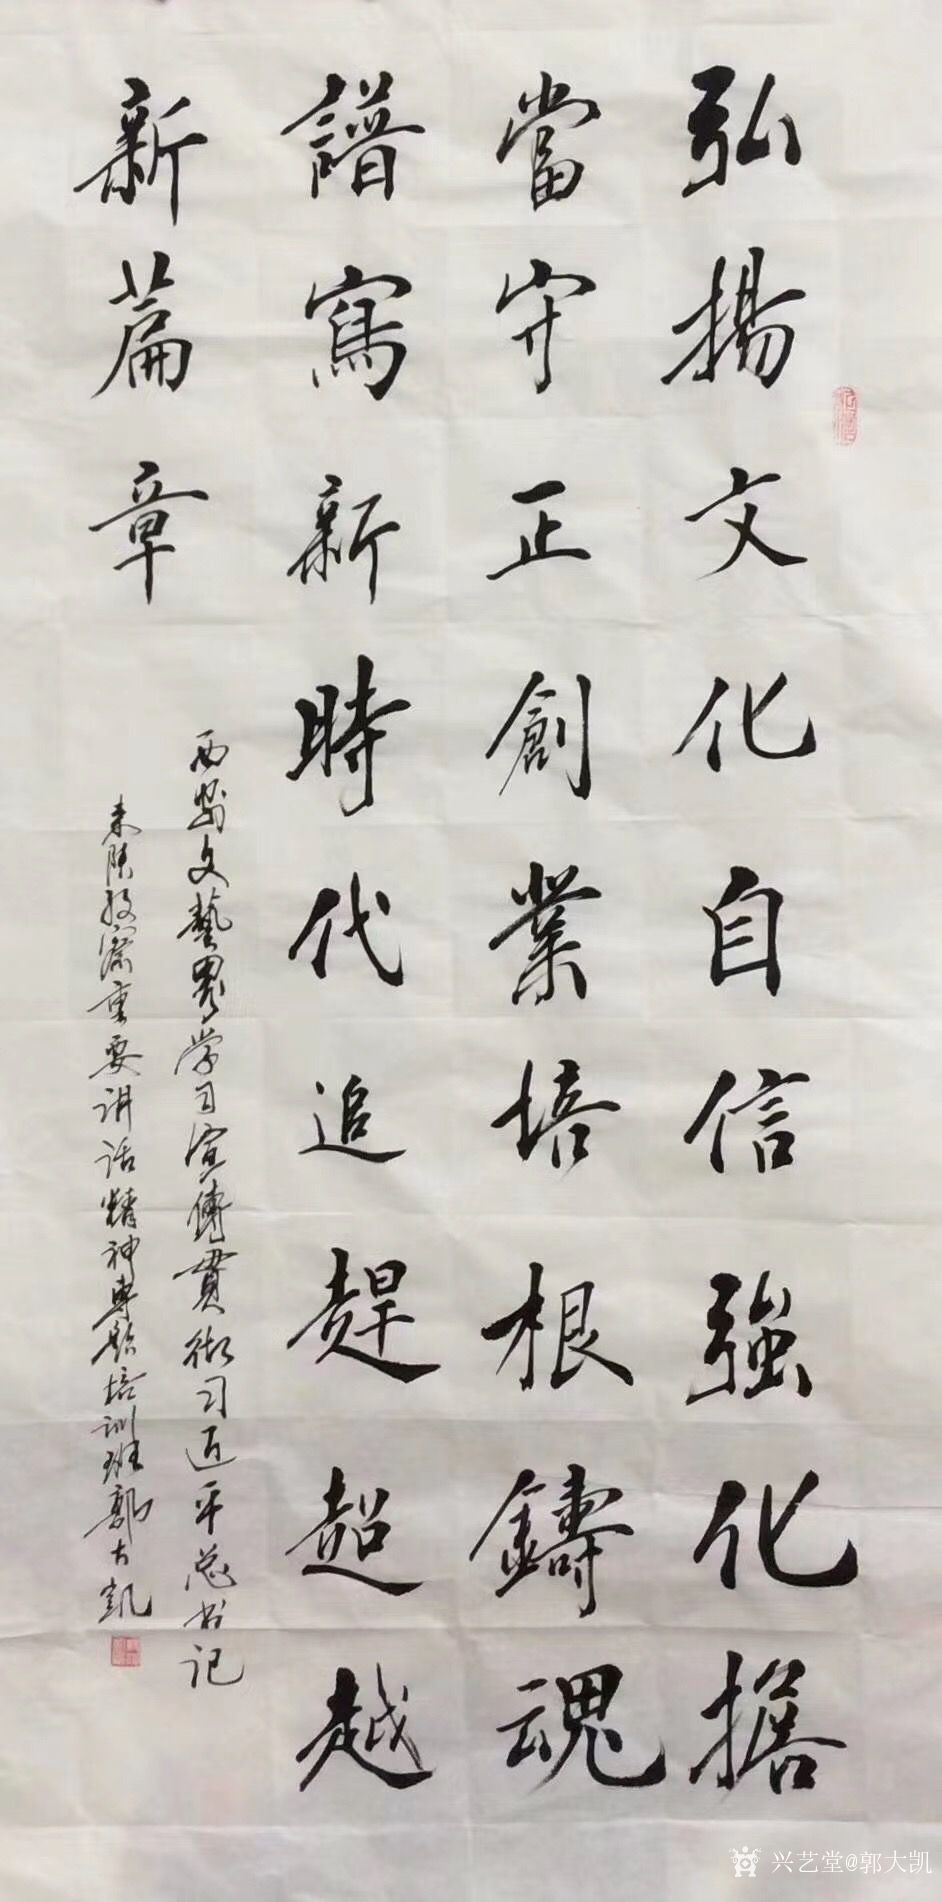 弘揚文化自信強化擔
當守正創業培根鑄魂
譜寫新時代追趕超越
新篇章
西安文藝界学习宣傳貫彻习近平总书记
来陕视察重要讲话精神專題培训班郭大凯
兴艺堂@郭大凯